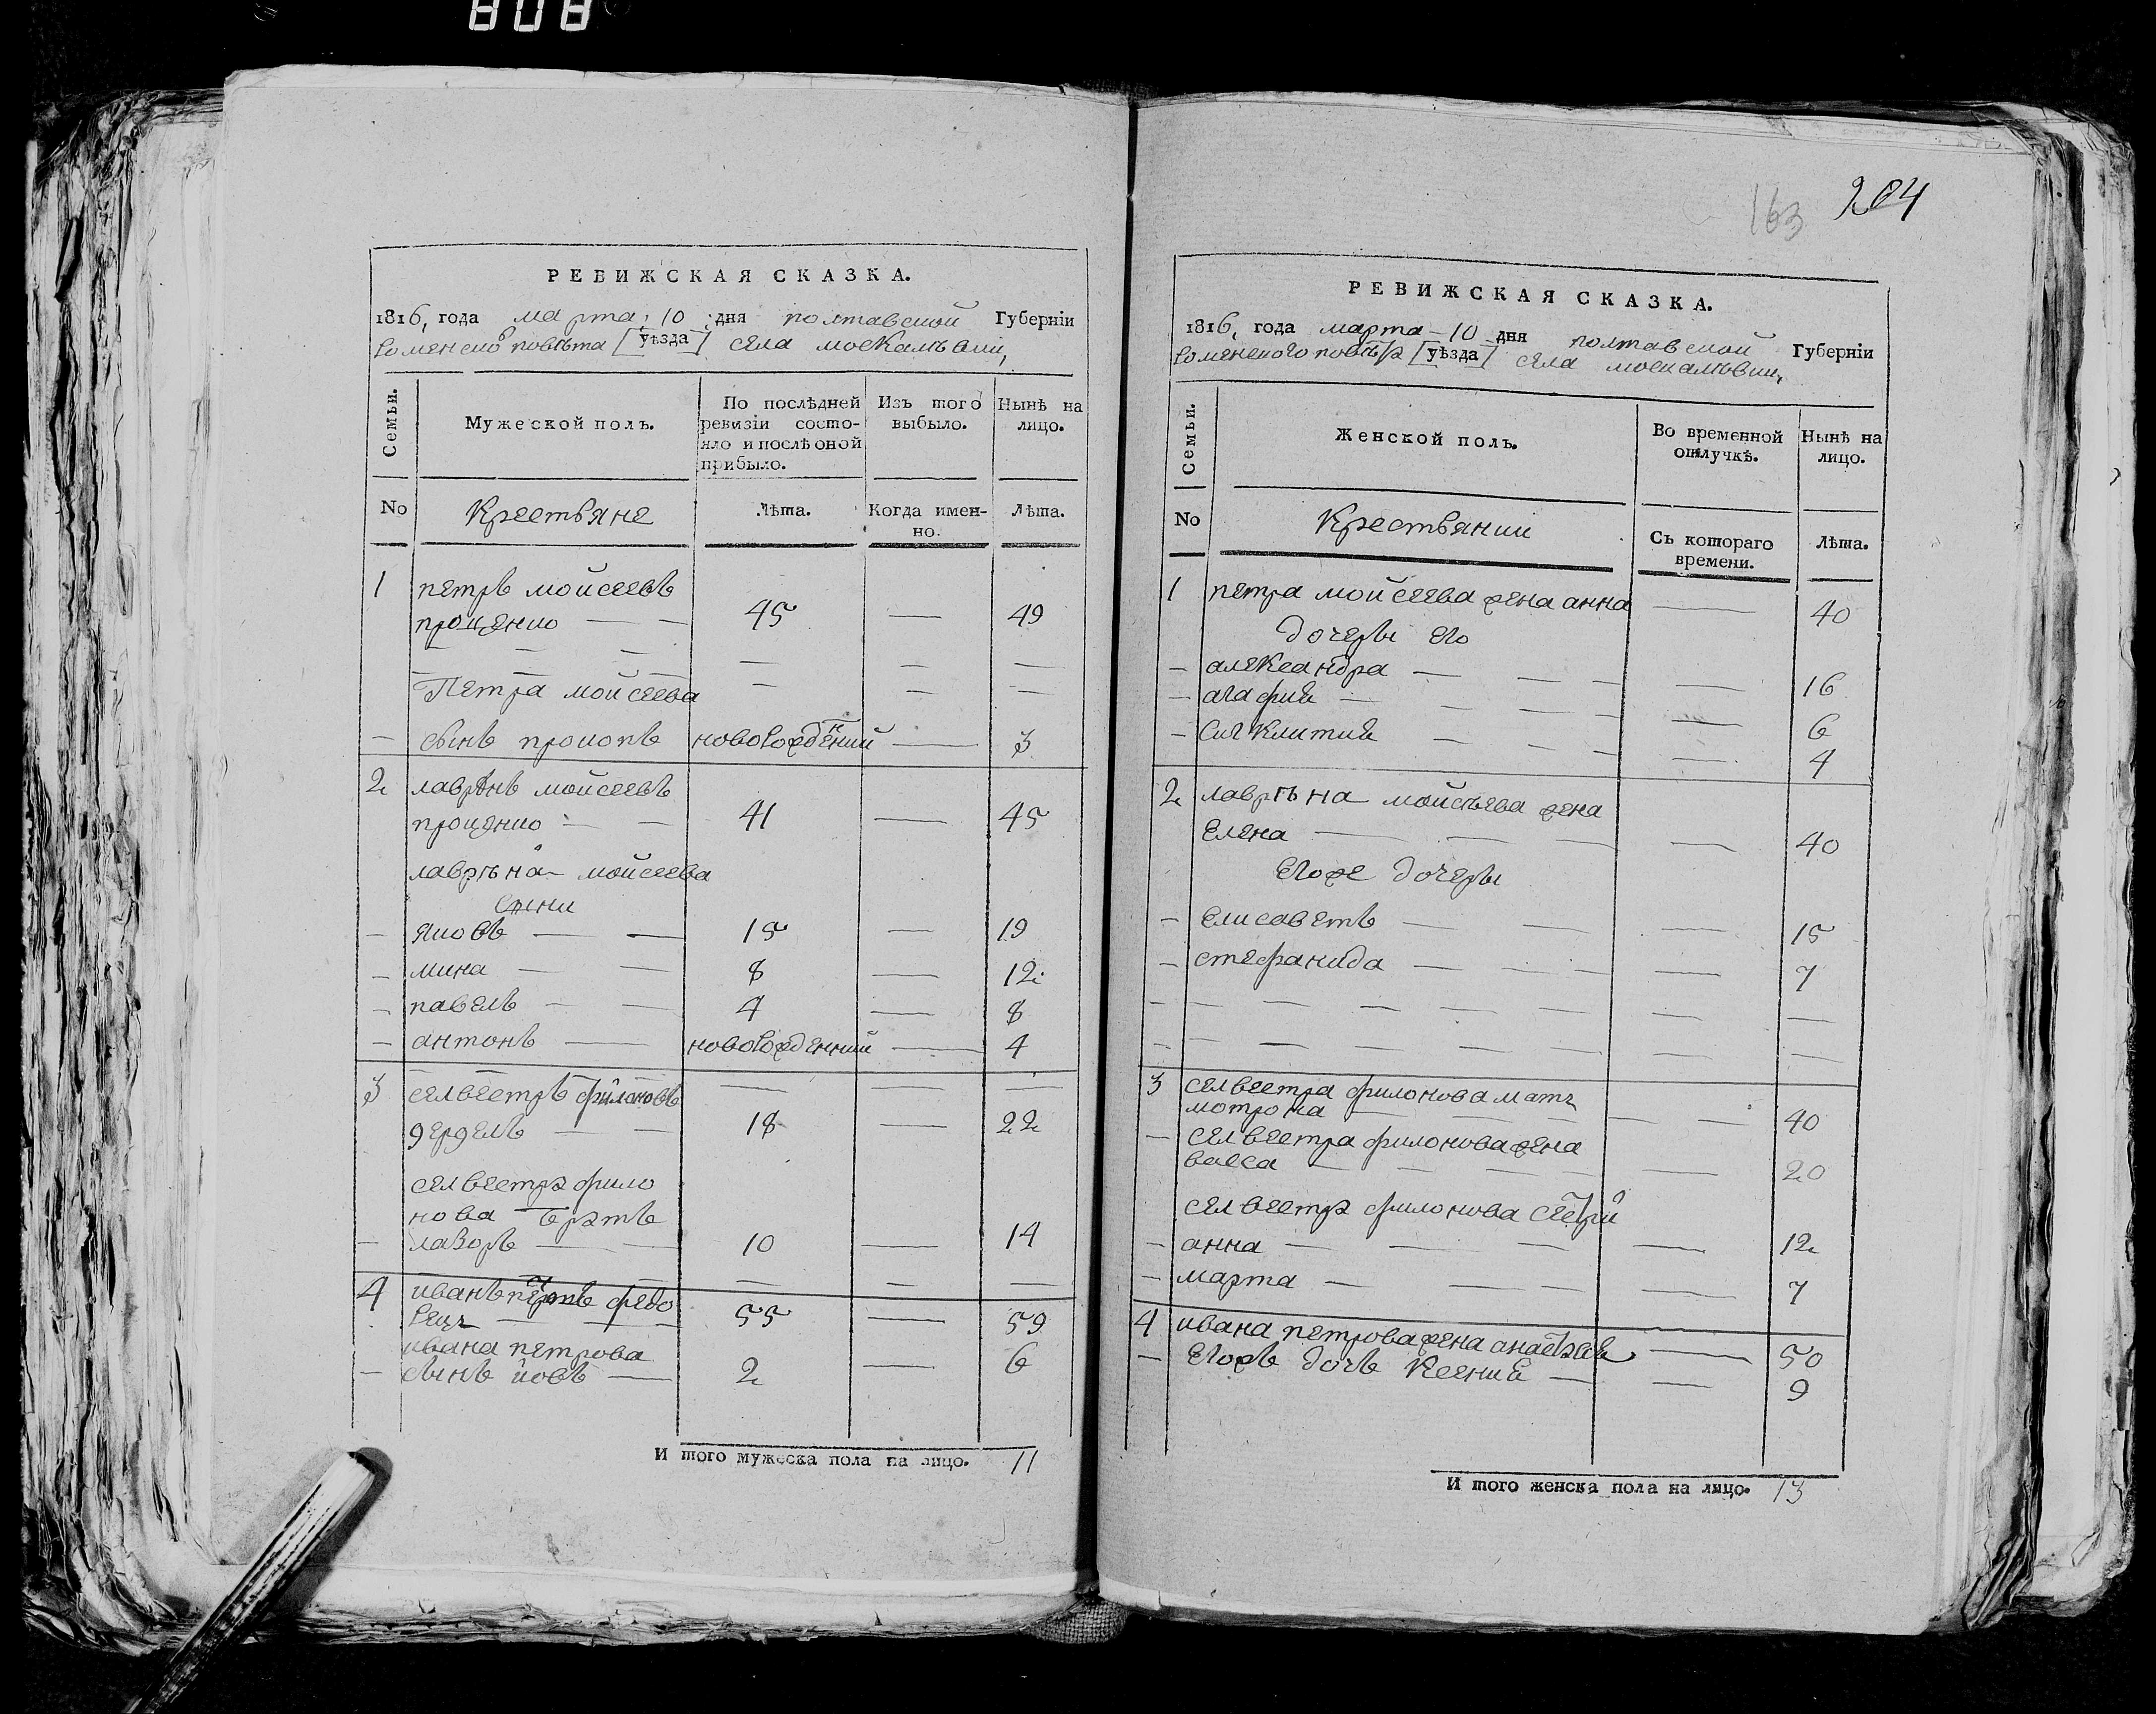 808
РЕВИЖСКАЯ СКАЗКА.
1816, года марта 10 дня полтавской Губерніи
Роменско повѣта [уѣзда] села москалѣвки,
Семьи.
Мужеской полъ.
По послѣдней ревизіи состояло и послѣ оной прибыло.
Изъ того выбыло.
Нынѣ на лицо.
No
Крестьяне
Лѣта.
Когда именно.
Лѣта.
1 петръ мойсеевъ
проценко — — 45 — 49
Петра мойсеева
— сынъ прокопъ новорожденний — 3
2 лаврѣнъ мойсеевъ
проценко — — 41 — 45
лаврѣна мойсеева
сыни
— яковъ — — 15 — 19
— мина — — 8 — 12
— павелъ — — 4 — 8
— антонъ — новорожденний — 4
3 селвестръ филоновъ
дердель — — 18 — 22
селвестра фило
нова братъ
— лазоръ — — 10 — 14
4 иванъ петровъ федо
рецъ — — 55 — 59
ивана петрова
— сынъ йовъ — 2 — 6
И того мужеска пола на лицо. 11
163 204
РЕВИЖСКАЯ СКАЗКА.
1816, года марта — 10 дня полтавской Губерніи
Роменского повѣта [уѣзда] села москалѣвки,
Семьи.
Женской полъ.
Во временной отлучкѣ.
Нынѣ на лицо.
No
Крестьянки
Съ котораго времени.
Лѣта.
1 петра мойсеева жена анна — 40
дочеры его
— александра — — — — 16
— агафия — — — — — 6
— Сигклития — — — — 4
2 лаврѣна мойсѣева жена
Елена — — — — 40
Егоже дочеры
— Елисаветъ — — — 15
— стефанида — — — — 7
3 селвестра филонова мать
мотрона — — — — 40
— селвестра филонова жена
васса — — — — 20
селвестра филонова сестри
— анна — — — — 12
— марта — — — — 7
4 ивана петрова жена анастасия — 50
— Егожъ дочъ Ксения — — 9
И того женска пола на лицо. 13